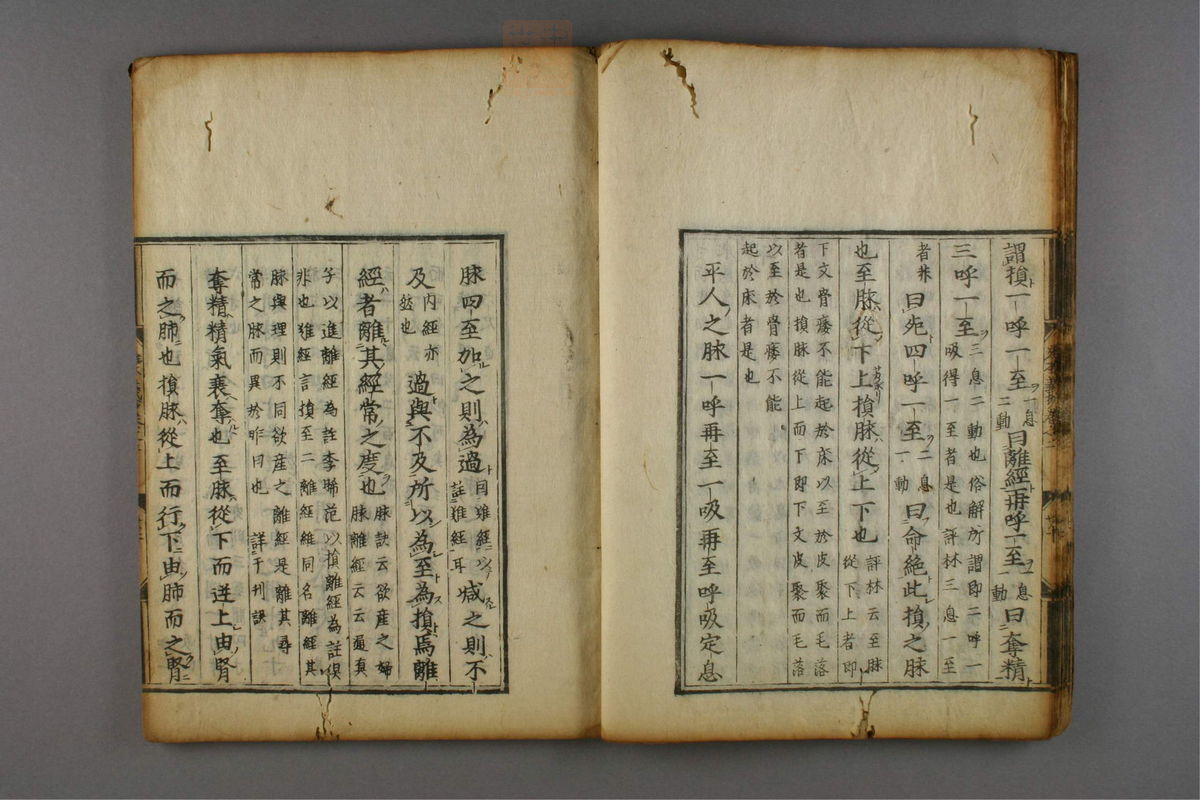 謂損一呼一至一息二動曰離經再呼一至一息一動曰奪精
三呼一至三息二動也俗解所謂即二呼一吸得一至者是也評林三息一至
者非曰死四呼一至二息一動曰命絕此損之脉
也至脉從下上損脉從上下也評林云至脉從下上者即
下文骨痿不能起於床以至於皮聚而毛落
者是也損脉從上而下即下文皮聚而毛落
以至於骨痿不能
起於床者是也
平人之脉一呼再至一吸再至呼吸定息
脉四至加之則為過同難經以註難經耳減之則不
及內經亦然也過與不及所以為至為損焉離
經者離其經常之度也脉訣云欲産之婦脉離經云云通真
子以進離經為註李晞范以損離經為註俱
非也難經言損至二離經維同名離經其
脉與理則不同欲産之離經是離其尋
常之脉而異於昨日也詳于刋誤
奪精精氣衰奪也至脉從下而逆上由腎
而之肺也損脉從上而行下由肺而之腎